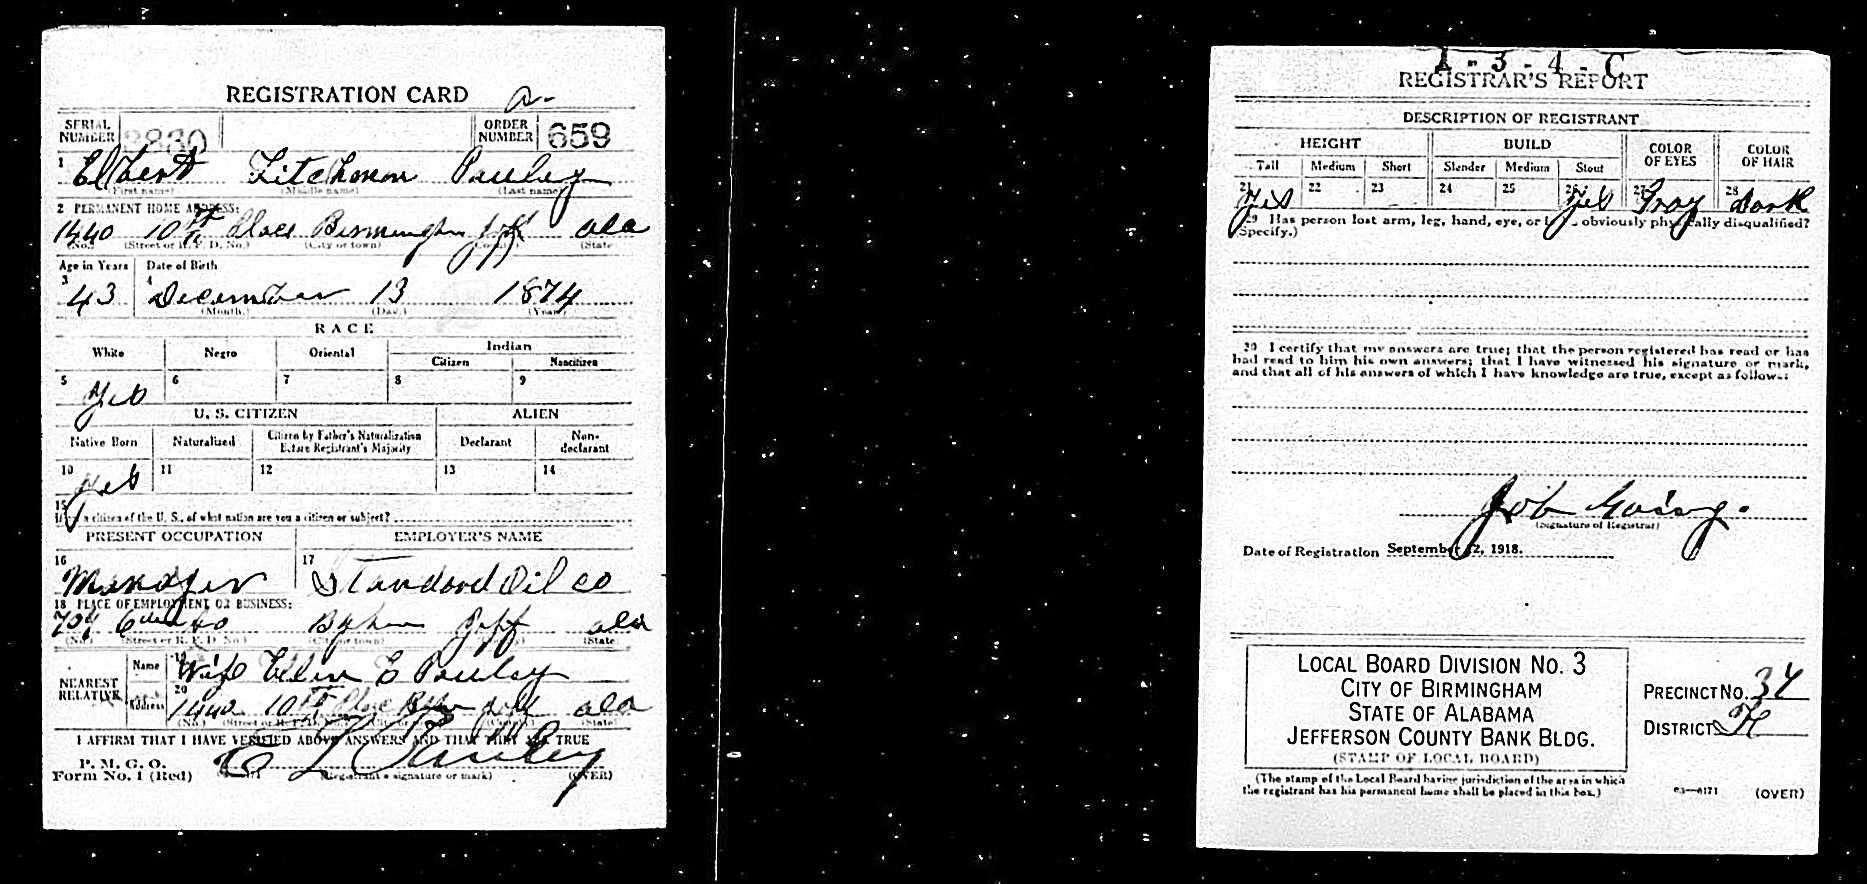 REGISTRATION CARD a-
SERIAL NUMBER 3830 ORDER NUMBER 659
1 Elbert Litchmon Pauley
(First name) (Middle name) (Last name)
2 PERMANENT HOME ADDRESS:
1440 10th Place Birmingham Jeff ala
(No.) (Street or R. F. D. No.) (City or town) (County) (State)
Age in Years Date of Birth
3 43 4 December 13 1874
(Month.) (Day.) (Year.)
RACE
White Negro Oriental Indian
Citizen Noncitizen
5 Yes 6 7 8 9
U. S. CITIZEN ALIEN
Native Born Naturalized Citizen by Father's Naturalization Before Registrant's Majority Declarant Non-declarant
10 Yes 11 12 13 14
15 If not a citizen of the U. S., of what nation are you a citizen or subject?
PRESENT OCCUPATION EMPLOYER'S NAME
16 Manager 17 Standard Oil co
18 PLACE OF EMPLOYMENT OR BUSINESS:
Bgham Jeff ala
(No.) (Street or R. F. D. No.) (City or town) (County) (State)
NEAREST RELATIVE Name 19 Wife Ellen E Pauley
Address 20 1440 10th Place Bham Jeff ala
(No.) (Street or R. F. D. No.) (City or town) (County) (State)
I AFFIRM THAT I HAVE VERIFIED ABOVE ANSWERS AND THAT THEY ARE TRUE
P. M. G. O.
Form No. 1 (Red) E L Pauley
(Registrant's signature or mark) (OVER)
1 - 3 - 4 - C
REGISTRAR'S REPORT
DESCRIPTION OF REGISTRANT
HEIGHT BUILD COLOR OF EYES COLOR OF HAIR
Tall Medium Short Slender Medium Stout
21 Yes 22 23 24 25 26 Yes 27 Gray 28 Dark
29 Has person lost arm, leg, hand, eye, or is he obviously physically disqualified?
(Specify.)
30 I certify that my answers are true; that the person registered has read or has
had read to him his own answers; that I have witnessed his signature or mark,
and that all of his answers of which I have knowledge are true, except as follows:
Job Going.
(Signature of Registrar)
Date of Registration September 12, 1918.
LOCAL BOARD DIVISION NO. 3
CITY OF BIRMINGHAM
STATE OF ALABAMA
JEFFERSON COUNTY BANK BLDG.
(STAMP OF LOCAL BOARD)
PRECINCT NO. 34
DISTRICT H
(The stamp of the Local Board having jurisdiction of the area in which
the registrant has his permanent home shall be placed in this box.)
03—6171 (OVER)